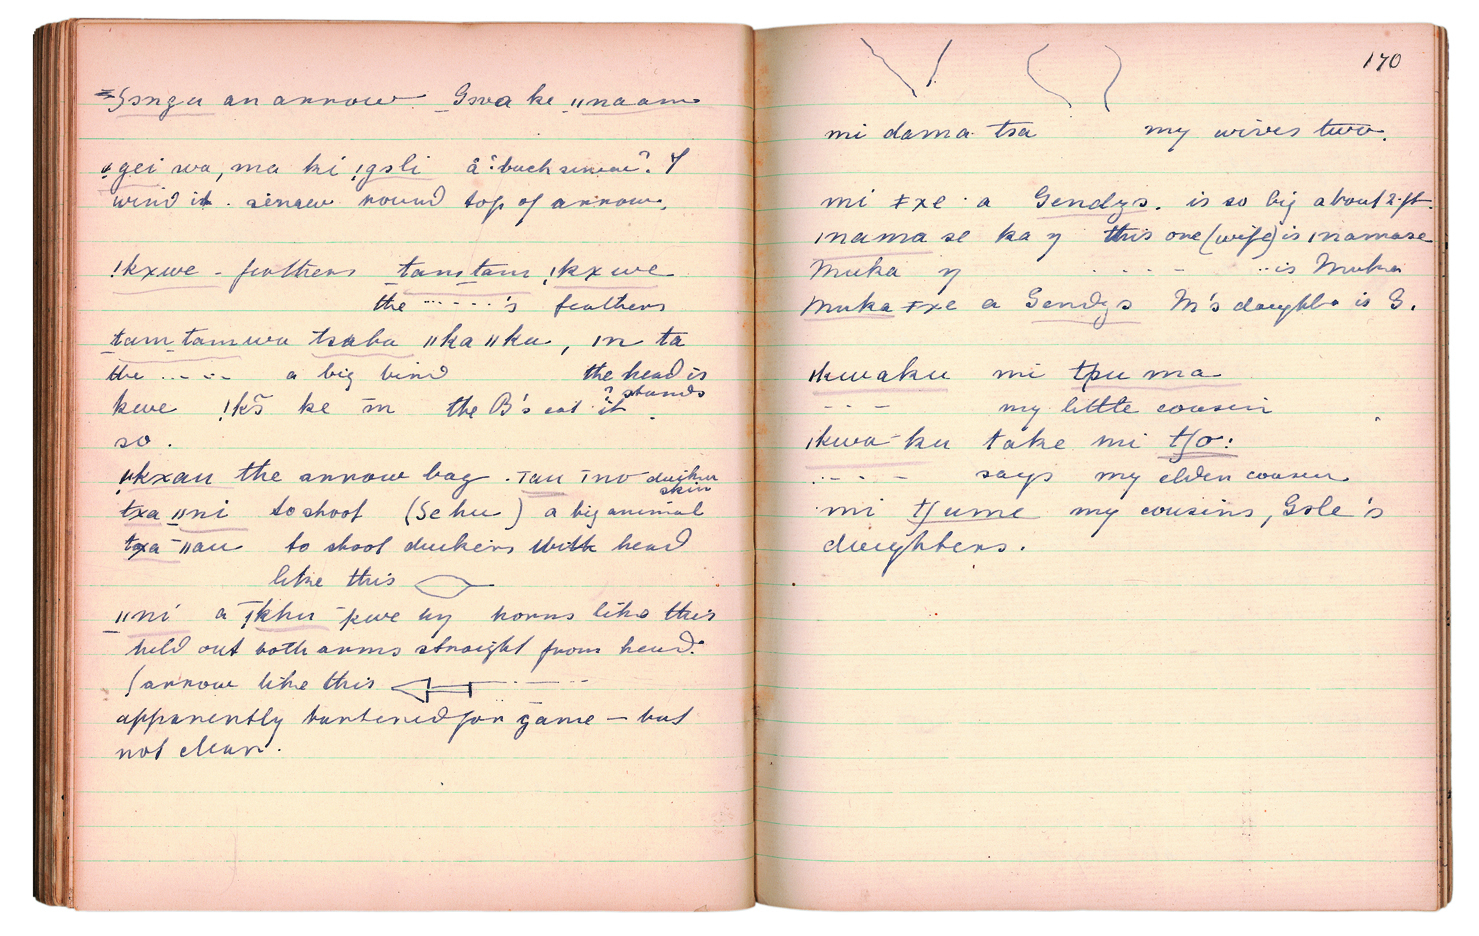 an arrow Gova ke ǁnaam
gei wa, ma ki ǃgɔli â: buck sinew? I
wind it. sinew round top of arrow.
ǃkxwe - feathers tamtam ǃkxwe
the ....'s feathers
tamtamwa tsaba ǁkaǁka, ın ta
the ..... a big bird the head is
stands
kwe ke m the B's eat it.
so.
ǁkxau the arrow bag. duiker
skin
txa ǁni to shoot (Schu) a big animal
txa ǁau to shoot duikers with head
like this
ǁni a horns like this
held out both arms straight from head.
(arrow like this
apparently bartered for game – but
not clear.
170
mi dama tsa my wives two.
mi ǂxe a Gendys. is so big about 2 ft.
ınama se ka y this one (wife) is ınamase
Muka y ..... is Muka
Muka ǂxe a Gendys M's daughter is G.
ǀkwaku mi tʃu ma
--- my little cousin
ǀkwa-ku take mi tʃo:
.... says my elder cousin
mi tʃume my cousins, Gole's
daughters.